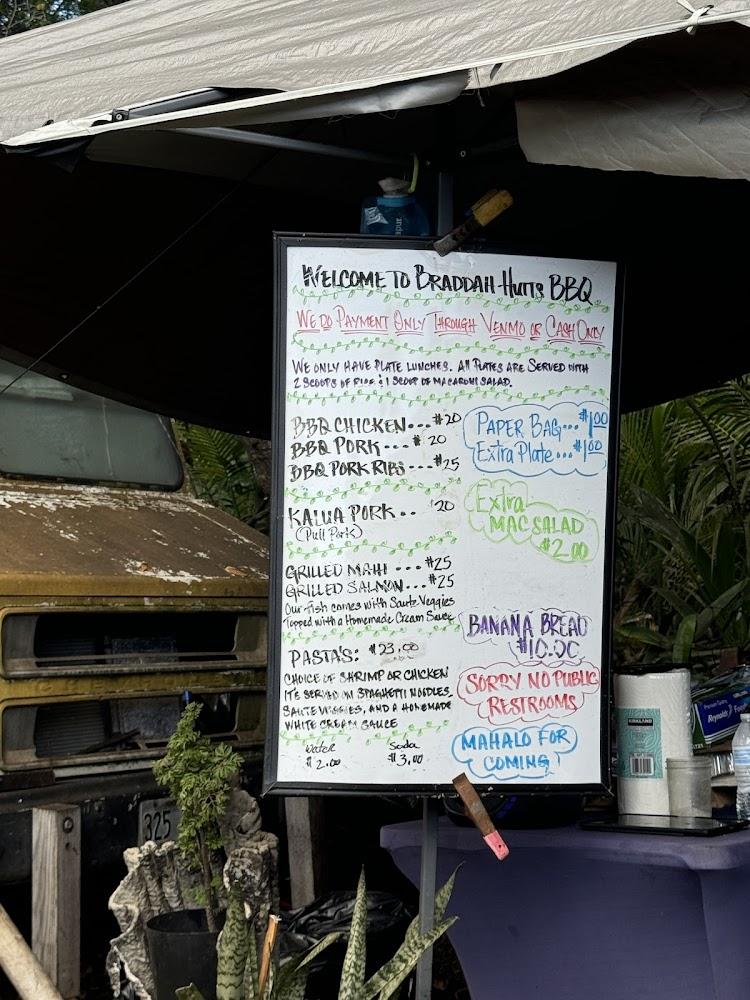 WELCOME TO BRADDAH HUTTS BBQ
WE DO PAYMENT ONLY THROUGH VENMO OR CASH ONLY
WE ONLY HAVE PLATE LUNCHES. All PLATES ARE SERVED WITH
2 SCOOPS OF RICE & 1 SCOOP OF MACARONI SALAD.
BBQ CHICKEN... $20
BBQ PORK... $20
BBQ PORK RIBS... $25
KALUA PORK.. 20
(Pull Pork)
GRILLED MAHI... $25
GRILLED SALMON... $25
Our fish comes with Saute Veggies
Topped with a Homemade Cream Sauce
PASTA'S: $23.00
CHOICE OF SHRIMP OR CHICKEN
IT'S SERVED ON SPAGHETTI NOODLES,
SAUTE VEGGIES, AND A HOMEMADE
WHITE CREAM SAUCE
Water
$2.00
Soda
$3.00
PAPER BAG... $1.00
Extra Plate... $1.00
Extra
MAC SALAD
$2.00
BANANA BREAD
$10.00
SORRY NO PUBLIC
RESTROOMS
MAHALO FOR
COMING!
325
KIRKLAND
Reynolds